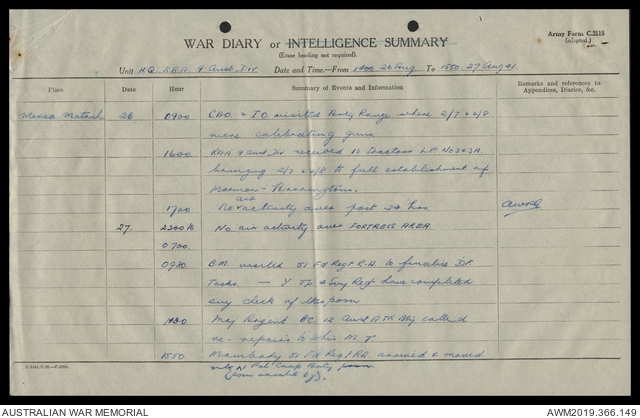 Army Form C.2118
(adapted.)
WAR DIARY or INTELLIGENCE SUMMARY
(Erase heading not required).
Unit H.Q. R.A.A. 9 Aust. Div Date and Time—From 1800 26 Aug To 1550. 27 Aug 41.
Place Date Hour Summary of Events and Information Remarks and references to Appendices, Diaries, &c.
Mersa Matruh 26 0900 C.R.A. & I.O. visited Range where 2/7 & 2/8
were calibrating guns
1600 RAA 9 Aust. Div received 13 Tractors LP No 3 & 3A
bringing 2/7 & 2/8 to full establishment of
Morrison - Hannington.
1700 No air activity over past 24 hrs
27. 2300 to No air activity over FORTRESS AREA.
0700.
0930 B.M. visited 51 Fd Regt R.A. to finalise D.F.
Tasks. — Y Tp & Svy Regt have completed
svy check of this posn
1430 Maj Argent BC 12 Aust A Tk Bty called
re - repairs to his M.T.
1550. Main body 51 Fd Regt RA arrived & moved
into N Pal Camp Bty posn.
AUSTRALIAN WAR MEMORIAL
AWM2019.366.149